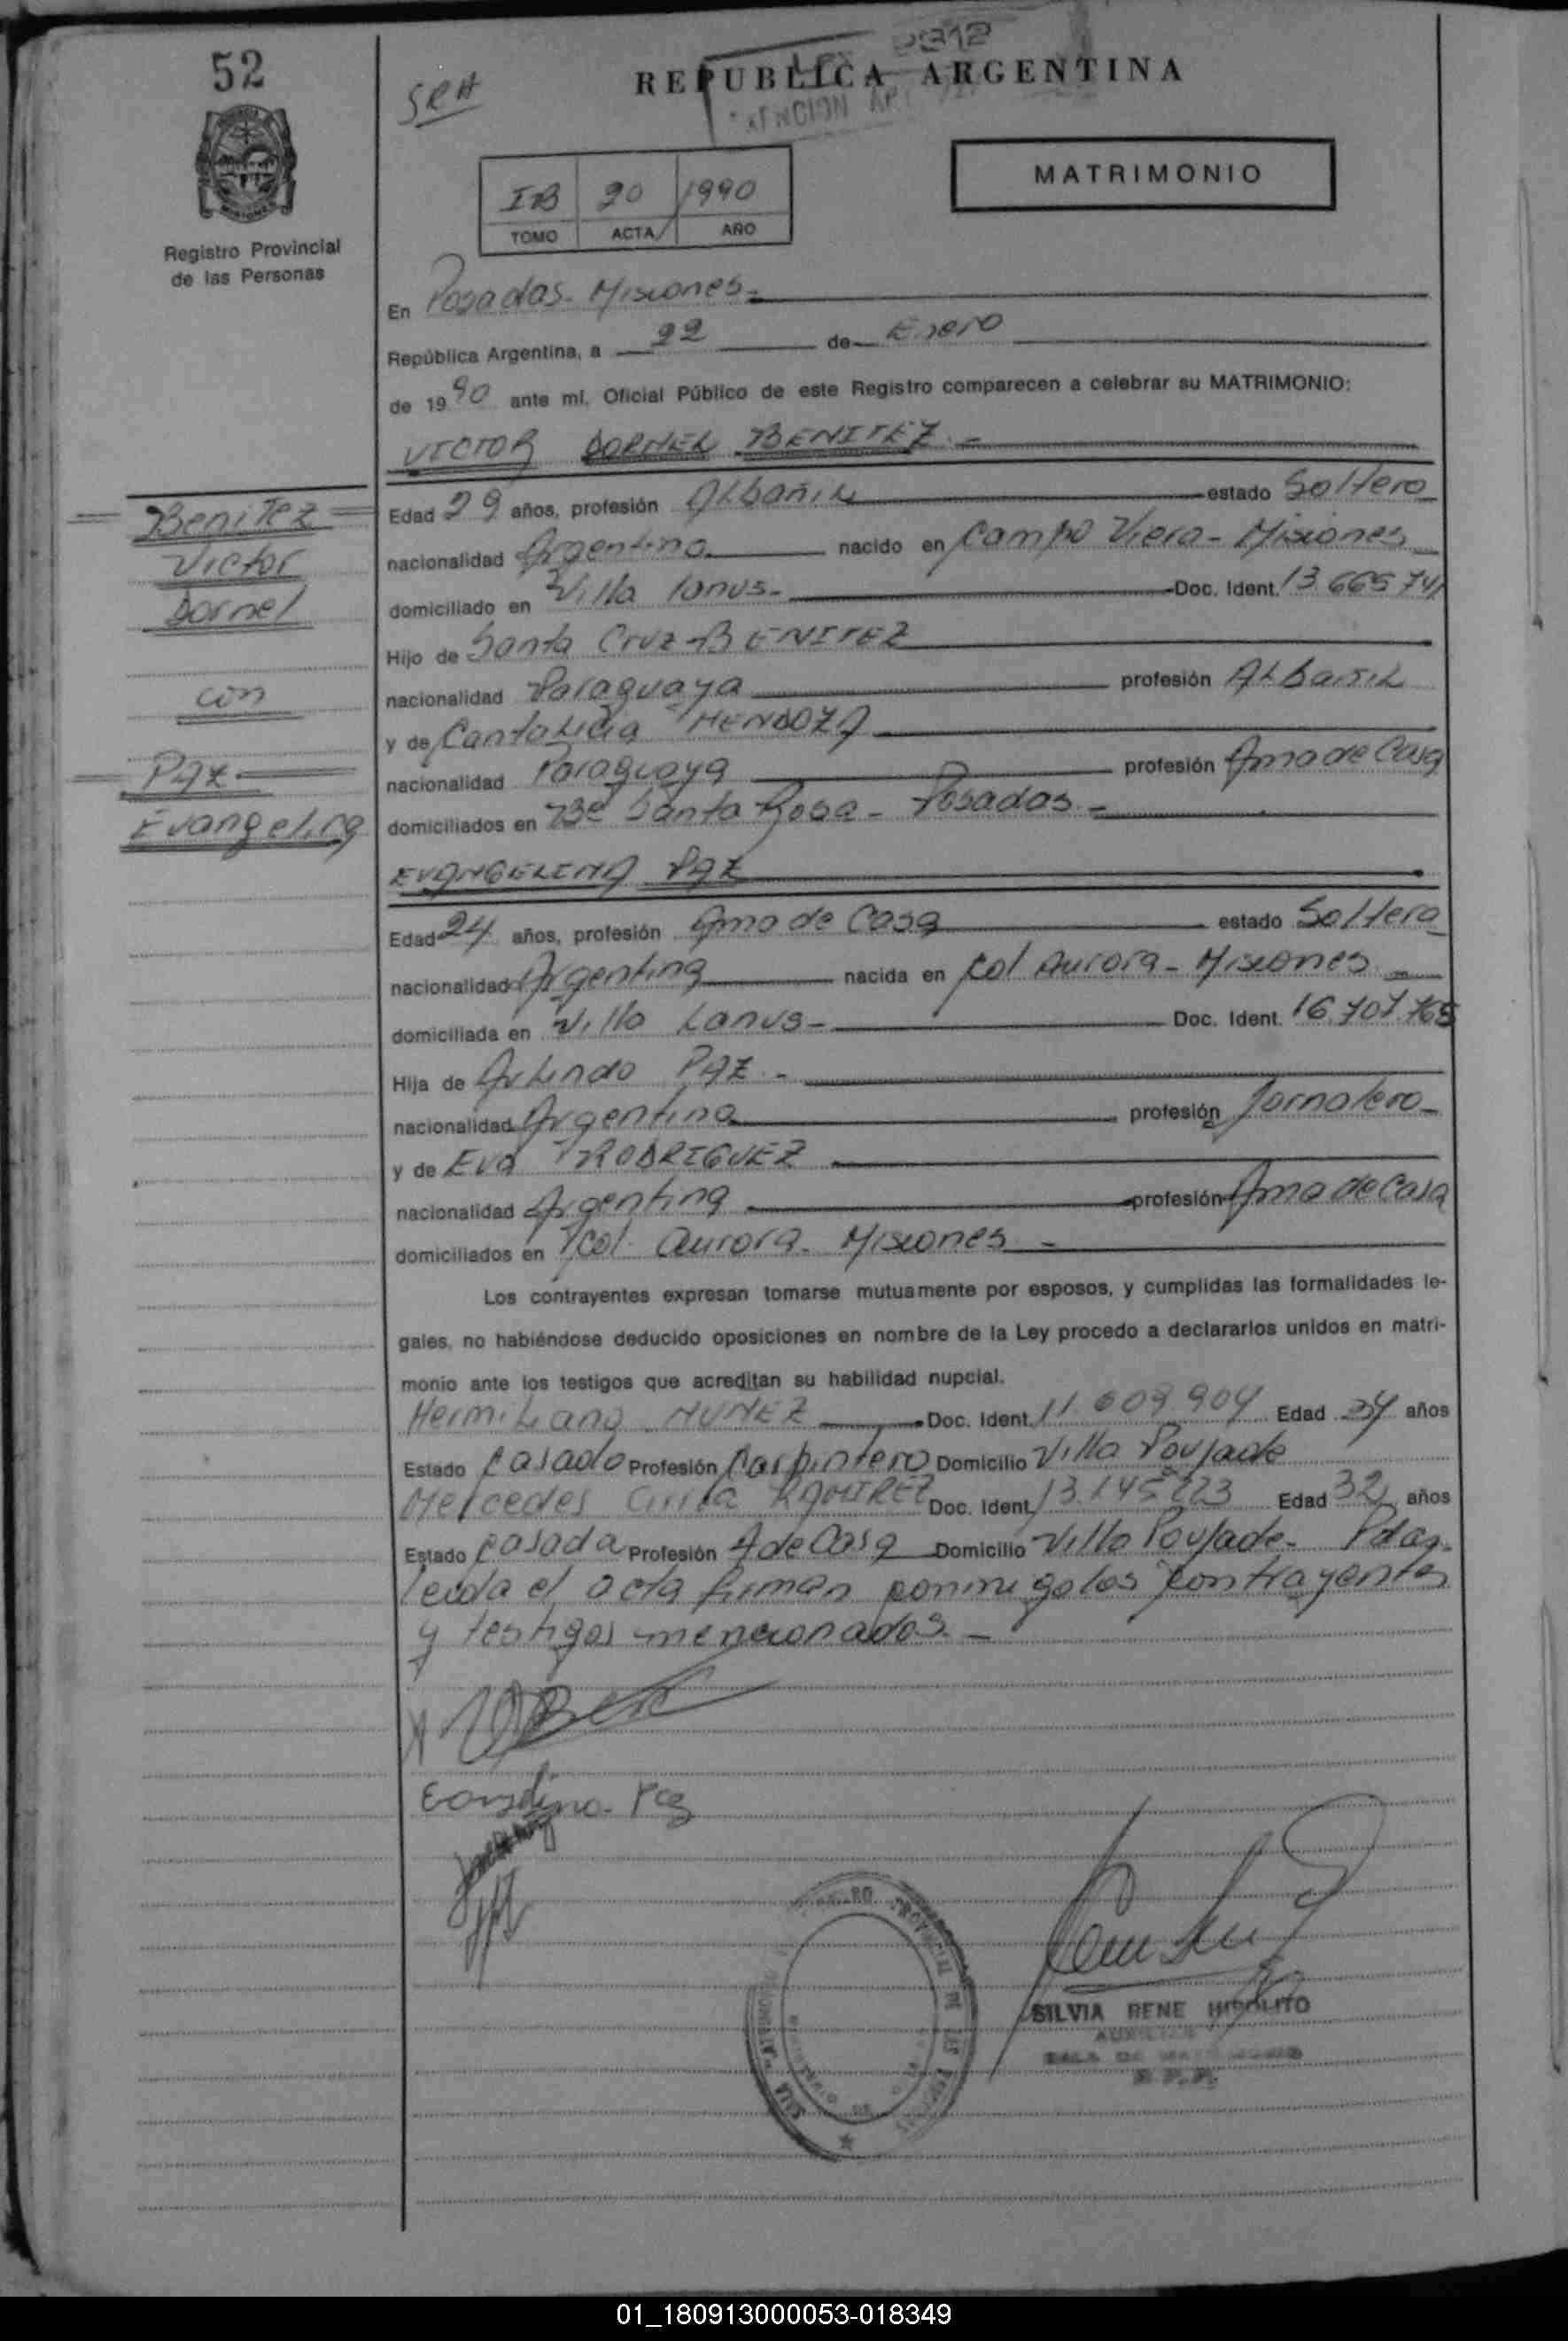 52
SRH
REPUBLICA ARGENTINA
IB 20 1990
TOMO ACTA AÑO
MATRIMONIO
Registro Provincial
de las Personas
En Posadas. Misiones.
República Argentina, a 22 de Enero
de 1990 ante mí, Oficial Público de este Registro comparecen a celebrar su MATRIMONIO:
VICTOR DORNEL BENITEZ
Benitez
Victor
Dornel
con
PAZ
Evangelina
Edad 29 años, profesión Albañil estado Soltero
nacionalidad Argentina nacido en Campo Viera - Misiones
domiciliado en Villa Lanus. Doc. Ident. 13.665.741
Hijo de Santa Cruz BENITEZ
nacionalidad Paraguaya profesión Albañil
y de Cantalicia MENDOZA
nacionalidad Paraguaya profesión Ama de Casa
domiciliados en Bº Santa Rosa - Posadas.
EVANGELINA PAZ
Edad 24 años, profesión Ama de Casa estado Soltera
nacionalidad Argentina nacida en Col Aurora - Misiones
domiciliada en Villa Lanus - Doc. Ident. 16.707.765
Hija de Arlindo PAZ. -
nacionalidad Argentina profesión Jornalero
y de Eva RODRIGUEZ
nacionalidad Argentina profesión Ama de Casa
domiciliados en Col. Aurora. Misiones -
Los contrayentes expresan tomarse mutuamente por esposos, y cumplidas las formalidades le-
gales, no habiéndose deducido oposiciones en nombre de la Ley procedo a declararlos unidos en matri-
monio ante los testigos que acreditan su habilidad nupcial.
Hermiliano NUÑEZ Doc. Ident. 11.609.904 Edad 34 años
Estado Casado Profesión Carpintero Domicilio Villa Poujade
Mercedes Cirila RAMIREZ Doc. Ident. 13.145.223 Edad 32 años
Estado Casada Profesión A de Casa Domicilio Villa Poujade. Pdas.
leida el acta firman conmigo los contrayentes
y testigos mencionados. -
Evangelina Paz
SILVIA RENE HIPOLITO
01_180913000053-018349